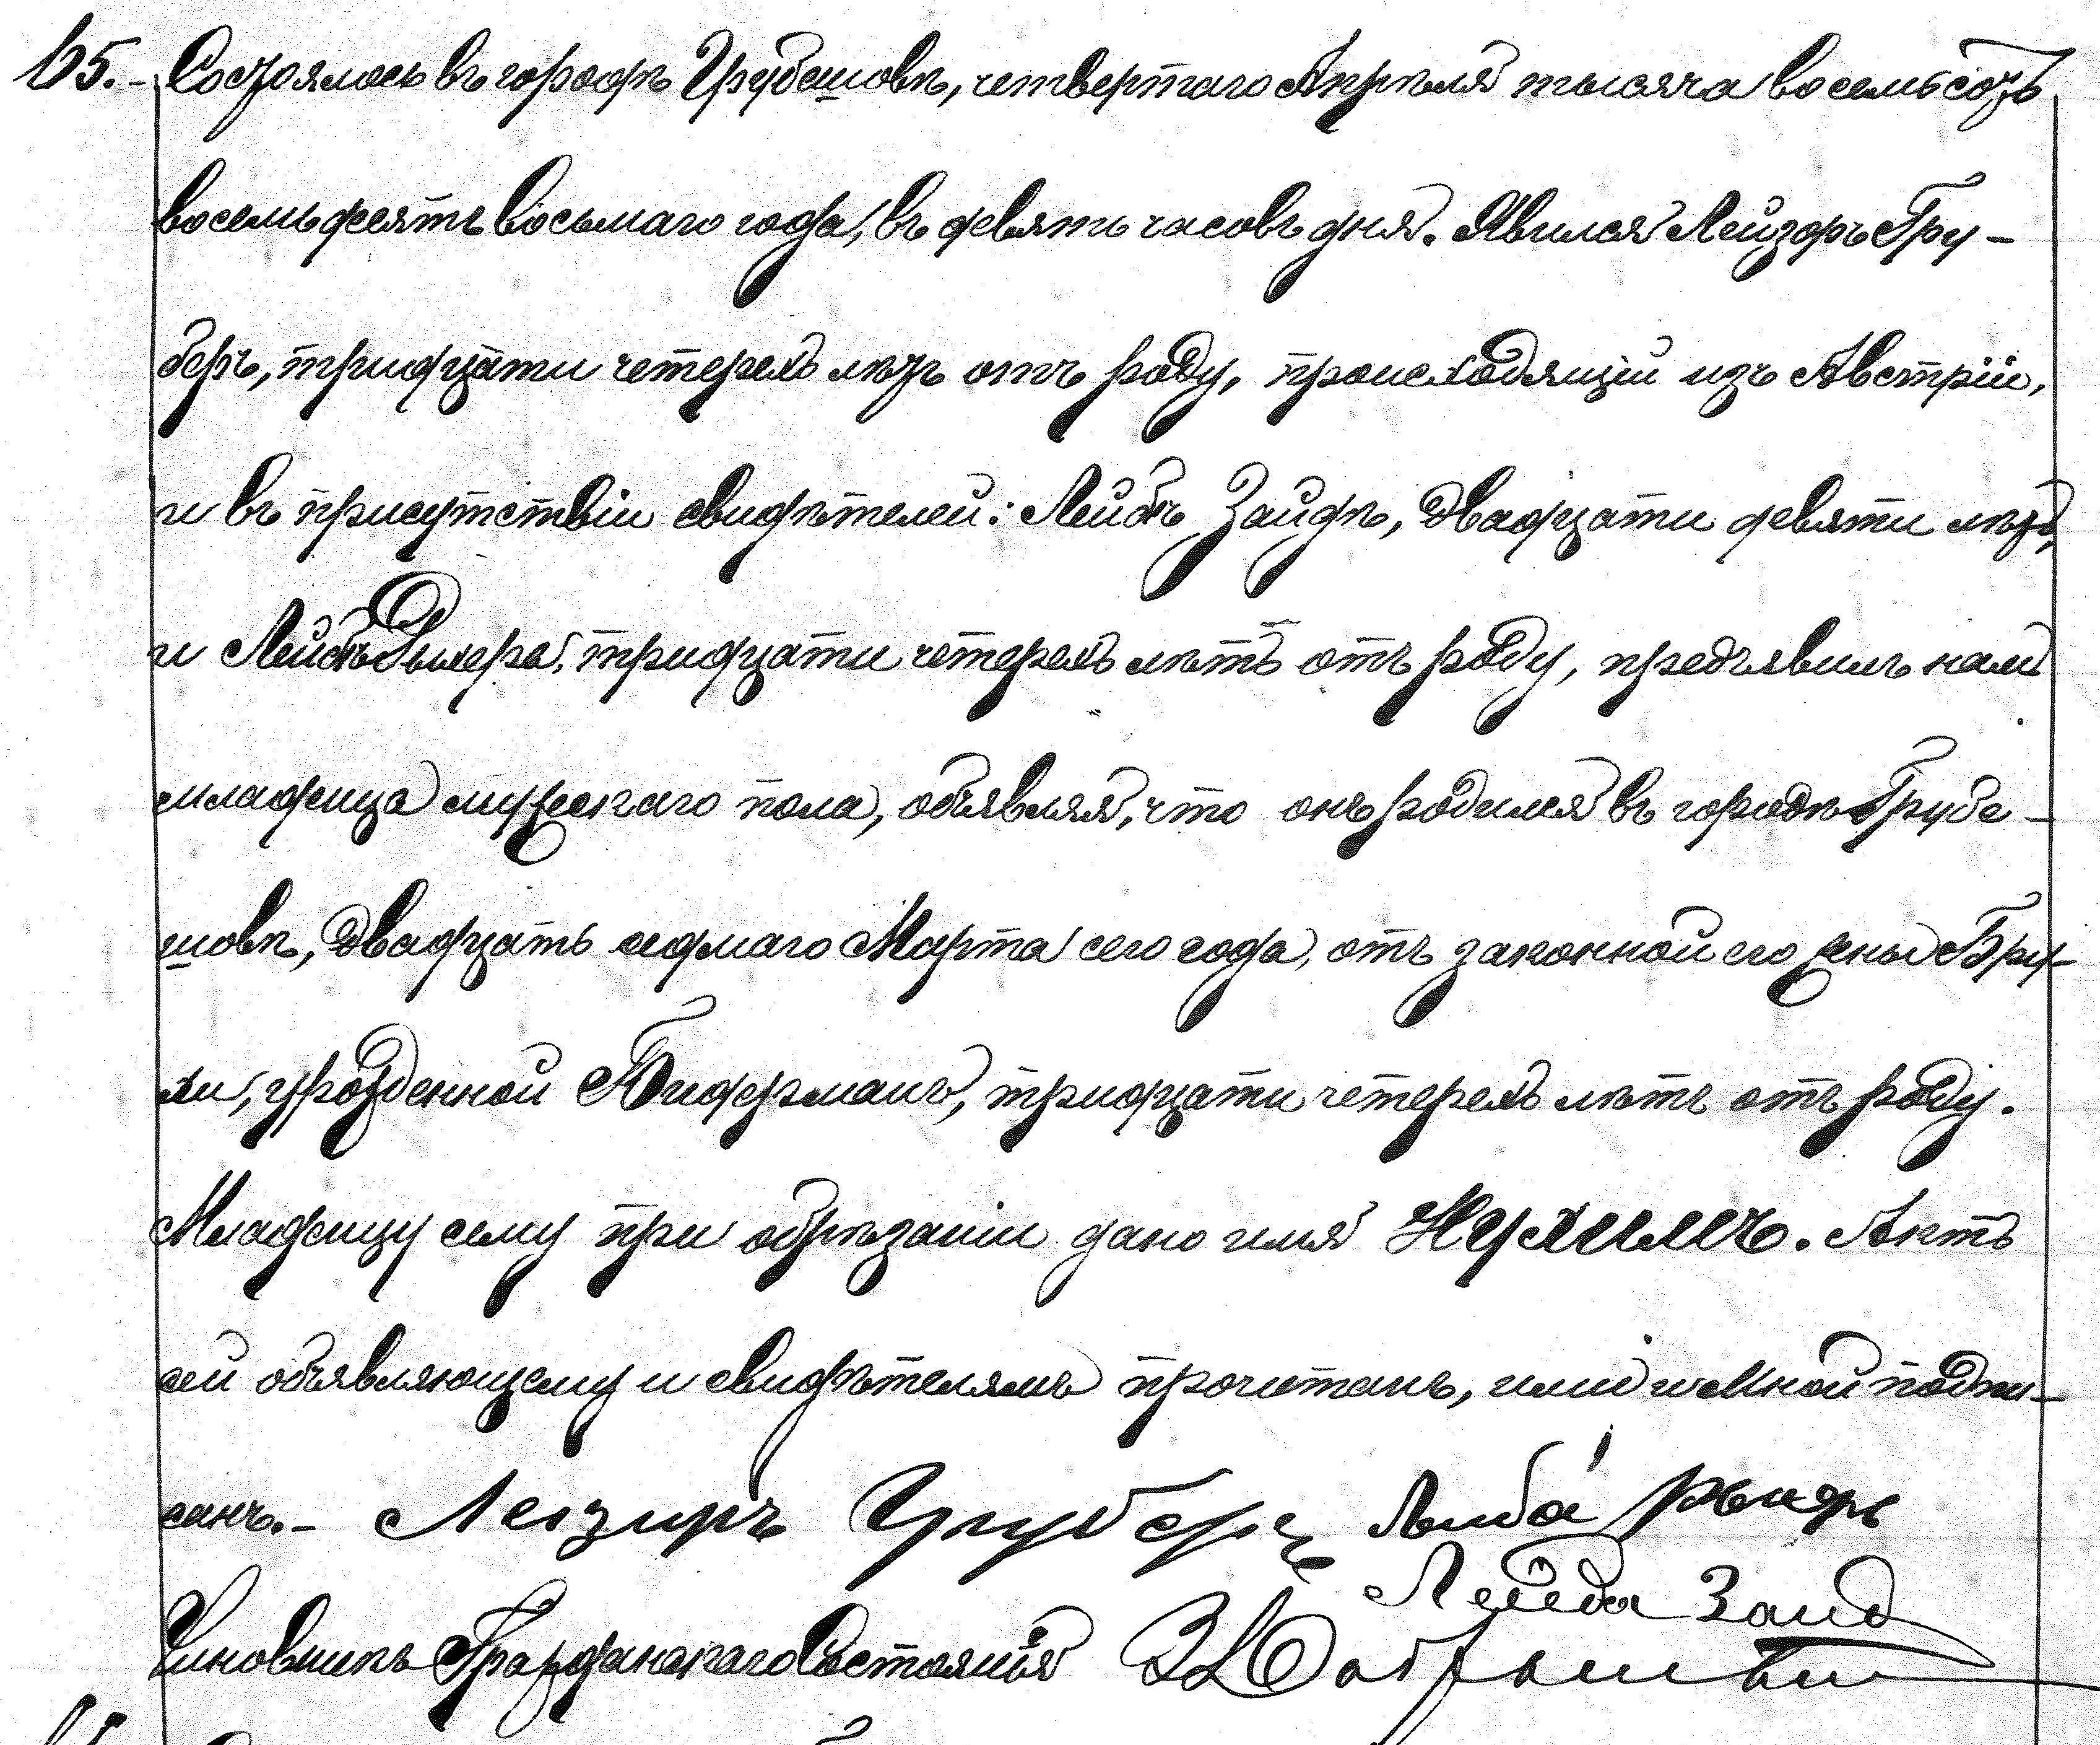 65.- Состоялось въ городѣ Грубешовѣ, четвертаго Апрѣля тысяча восемьсотъ
восемьдесятъ восьмаго года, въ девять часовъ дня. Явился Лейзоръ Гру-
беръ, тридцати четерехъ лѣтъ отъ роду, происходящій изъ Австріи,
и въ присутствіи свидѣтелей: Лейбъ Зайдъ, двадцати девяти лѣтъ,
и Лейбъ тридцати четерехъ лѣтъ отъ роду, предъявилъ намъ
младенца мужескаго пола, объявляя, что онъ родился въ городѣ Грубе-
шовѣ, двадцать седмаго Марта сего года, отъ законной его жены Бру-
хи, урожденной тридцати четерехъ лѣтъ отъ роду.
Младенцу сему при обрѣзаніи дано имя Нухимъ. Актъ
сей объявляющему и свидѣтелямъ прочитанъ, ими и Мной подпи-
санъ.- Лейзиръ Груберъ Лейба
Лейба Заид
Чиновникъ Гражданскаго Состоянія